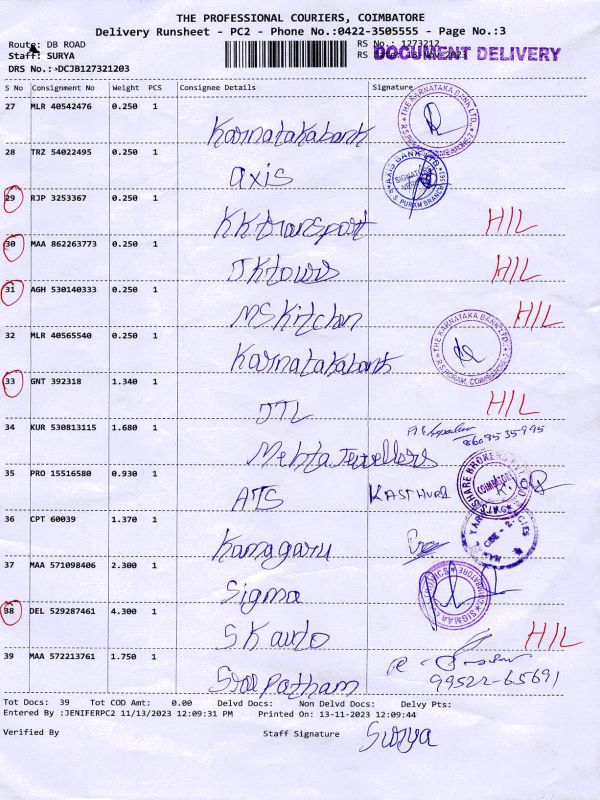 THE PROFESSIONAL COURIERS, COIMBATORE
Delivery Runsheet - PC2 - Phone No.:0422-3505555 - Page No.:3
Route: DB ROAD
RS No.: 1273212
Staff: SURYA
RS
DOCUMENT DELIVERY
DRS No.: DCJB127321203
S No Consignment No Weight PCS Consignee Details Signature
27 MLR 40542476 0.250 1
Karnatakabank
THE KARNATAKA BANK LTD.
28 TRZ 54022495 0.250 1
axis
AXIS BANK LTD
R.S. PURAM BRANCH
29 RJP 3253367 0.250 1
KK transport H/L
30 MAA 862263773 0.250 1
H/L
31 AGH 530140333 0.250 1
MS Kitchen H/L
32 MLR 40565540 0.250 1
Karnatakabank
THE KARNATAKA BANK LTD.
33 GNT 392318 1.340 1
H/L
34 KUR 530813115 1.680 1
Mehta Jewellers
35 PRO 15516580 0.930 1
ATS
COIMBATORE
36 CPT 60039 1.370 1
Kamagaru
37 MAA 571098406 2.300 1
Sigma
38 DEL 529287461 4.300 1
SK auto H/L
39 MAA 572213761 1.750 1
99522-65691
Tot Docs: 39 Tot COD Amt: 0.00 Delvd Docs: Non Delvd Docs: Delvy Pts:
Entered By :JENIFERPC2 11/13/2023 12:09:31 PM Printed On: 13-11-2023 12:09:44
Verified By Staff Signature Surya